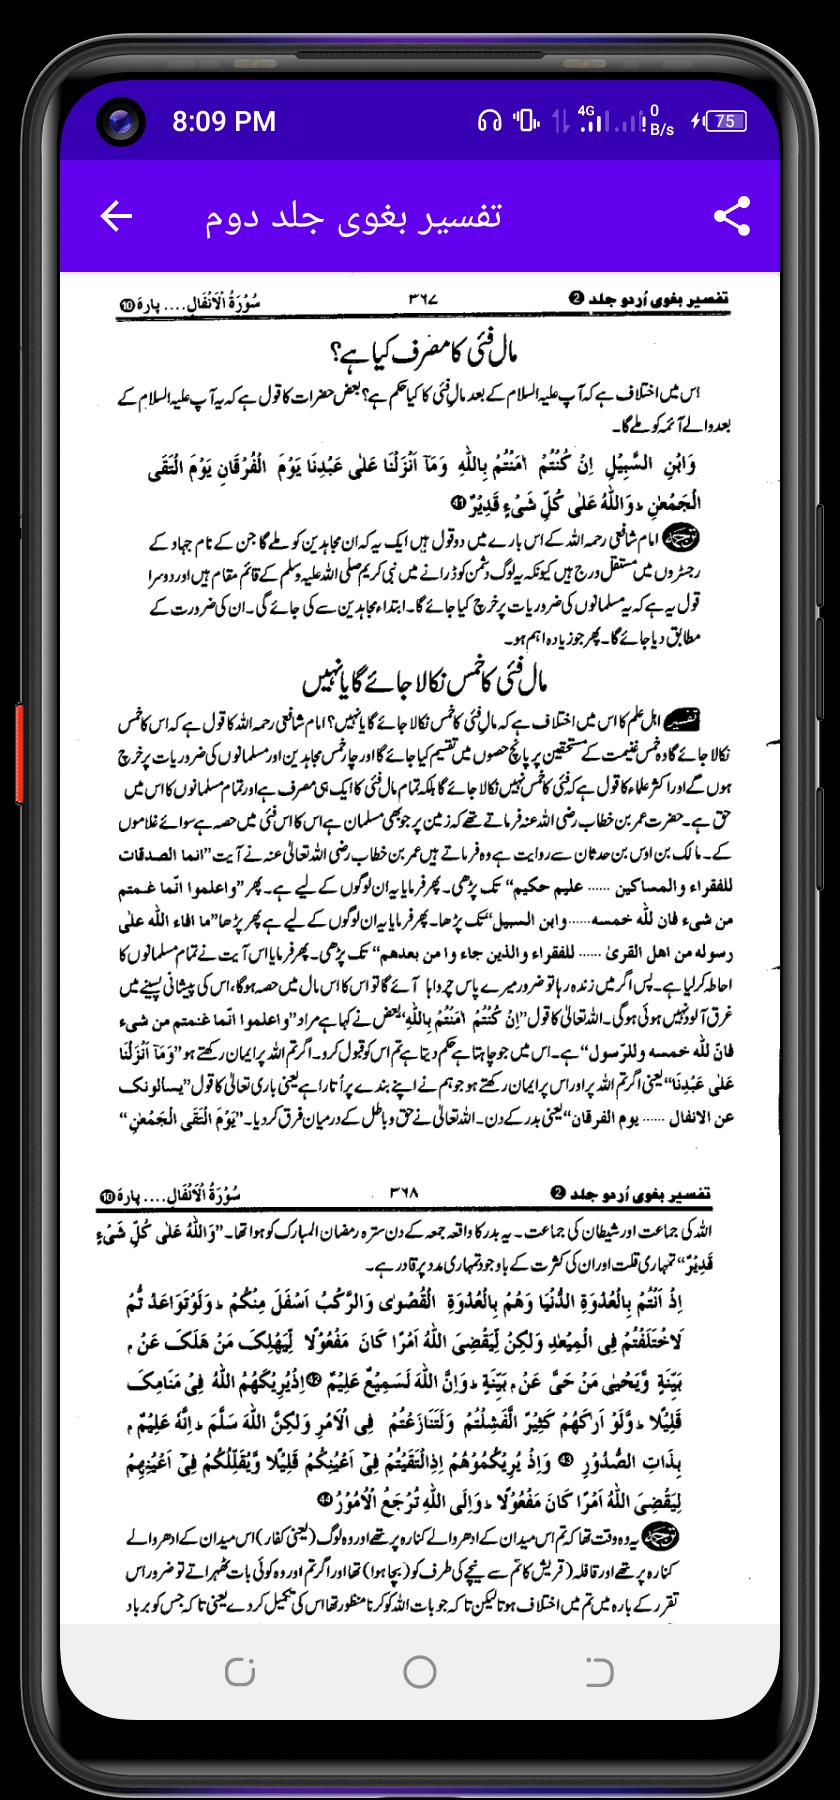 8:09 PM
4G
0
B/s
75
تفسیر بغوی جلد دوم
تفسیر بغوی اُردو جلد 2 ۳۶۷ سُوْرَةُ الْاَنْفَالِ .... پارہ 10
مال فئی کا مصرف کیا ہے؟
اس میں اختلاف ہے کہ آپ علیہ السلام کے بعد مال فئی کا کیا حکم ہے؟ بعض حضرات کا قول ہے کہ یہ آپ علیہ السلام کے
بعد والے آئمہ کو ملے گا۔
وَابْنِ السَّبِيْلِ اِنْ كُنْتُمْ اٰمَنْتُمْ بِاللّٰهِ وَمَآ اَنْزَلْنَا عَلٰى عَبْدِنَا يَوْمَ الْفُرْقَانِ يَوْمَ الْتَقَى
الْجَمْعٰنِ ؕ وَاللّٰهُ عَلٰى كُلِّ شَىْءٍ قَدِيْرٌ 41
ترجمہ امام شافعی رحمہ اللہ کے اس بارے میں دو قول ہیں ایک یہ کہ ان مجاہدین کو ملے گا جن کے نام جہاد کے
رجسٹروں میں مستقل درج ہیں کیونکہ یہ لوگ دشمن کو ڈرانے میں نبی کریم صلی اللہ علیہ وسلم کے قائم مقام ہیں اور دوسرا
قول یہ ہے کہ یہ مسلمانوں کی ضروریات پر خرچ کیا جائے گا۔ ابتداء مجاہدین سے کی جائے گی۔ ان کی ضرورت کے
مطابق دیا جائے گا۔ پھر جو زیادہ اہم ہو۔
مال فئی کا خمس نکالا جائے گا یا نہیں
تفسیر اہل علم کا اس میں اختلاف ہے کہ مال فئی کا خمس نکالا جائے گا یا نہیں؟ امام شافعی رحمہ اللہ کا قول ہے کہ اس کا خمس
نکالا جائے گا وہ خمس غنیمت کے مستحقین پر پانچ حصوں میں تقسیم کیا جائے گا اور چار خمس مجاہدین اور مسلمانوں کی ضروریات پر خرچ
ہوں گے اور اکثر علماء کا قول ہے کہ فئی کا خمس نہیں نکالا جائے گا بلکہ تمام مال فئی کا ایک ہی مصرف ہے اور تمام مسلمانوں کا اس میں
حق ہے۔ حضرت عمر بن خطاب رضی اللہ عنہ فرماتے تھے کہ زمین پر جو بھی مسلمان ہے اس کا اس فئی میں حصہ ہے سوائے غلاموں
کے۔ مالک بن اوس بن حدثان سے روایت ہے وہ فرماتے ہیں عمر بن خطاب رضی اللہ تعالیٰ عنہ نے آیت ”انما الصدقات
للفقراء والمساكين ...... عليم حكيم“ تک پڑھی۔ پھر فرمایا یہ ان لوگوں کے لیے ہے۔ پھر ”واعلموا انّما غنمتم
من شىء فان لله خمسه ...... وابن السبيل“ تک پڑھا۔ پھر فرمایا یہ ان لوگوں کے لیے ہے پھر پڑھا ”ما افاء الله على
رسوله من اهل القرىٰ ...... للفقراء والذين جاء وا من بعدهم“ تک پڑھی۔ پھر فرمایا اس آیت نے تمام مسلمانوں کا
احاطہ کرلیا ہے۔ پس اگر میں زندہ رہا تو ضرور میرے پاس چرواہا آئے گا تو اس کا اس مال میں حصہ ہوگا، اس کی پیشانی پسینے میں
غرق آلود نہیں ہوئی ہوگی۔ اللہ تعالیٰ کا قول ”اِنْ كُنْتُمْ اٰمَنْتُمْ بِاللّٰهِ“ بعض نے کہا ہے مراد ”واعلموا انّما غنمتم من شىء
فانّ لله خمسه وللرّسول“ ہے۔ اس میں جو چاہتا ہے حکم دیتا ہے تم اس کو قبول کرو۔ اگر تم اللہ پر ایمان رکھتے ہو ”وَمَآ اَنْزَلْنَا
عَلٰى عَبْدِنَا“ یعنی اگر تم اللہ پر اور اس پر ایمان رکھتے ہو جو ہم نے اپنے بندے پر اُتارا ہے یعنی باری تعالیٰ کا قول ”يسألونك
عن الانفال ...... يوم الفرقان“ یعنی بدر کے دن۔ اللہ تعالیٰ نے حق و باطل کے درمیان فرق کردیا۔ ”يَوْمَ الْتَقَى الْجَمْعٰنِ“
تفسیر بغوی اُردو جلد 2 ۳۶۸ سُوْرَةُ الْاَنْفَالِ .... پارہ 10
اللہ کی جماعت اور شیطان کی جماعت۔ یہ بدر کا واقعہ جمعہ کے دن سترہ رمضان المبارک کو ہوا تھا۔ ”وَاللّٰهُ عَلٰى كُلِّ شَىْءٍ
قَدِيْرٌ“ تمہاری قلت اور ان کی کثرت کے باوجود تمہاری مدد پر قادر ہے۔
اِذْ اَنْتُمْ بِالْعُدْوَةِ الدُّنْيَا وَهُمْ بِالْعُدْوَةِ الْقُصْوٰى وَالرَّكْبُ اَسْفَلَ مِنْكُمْ ؕ وَلَوْ تَوَاعَدْ تُّمْ
لَاخْتَلَفْتُمْ فِى الْمِيْعٰدِ وَلٰكِنْ لِّيَقْضِىَ اللّٰهُ اَمْرًا كَانَ مَفْعُوْلًا لِّيَهْلِكَ مَنْ هَلَكَ عَنْ ۢ
بَيِّنَةٍ وَّيَحْيٰى مَنْ حَىَّ عَنْ ۢ بَيِّنَةٍ ؕ وَاِنَّ اللّٰهَ لَسَمِيْعٌ عَلِيْمٌ 42 اِذْ يُرِيْكَهُمُ اللّٰهُ فِىْ مَنَامِكَ
قَلِيْلًا ؕ وَلَوْ اَرٰكَهُمْ كَثِيْرًا لَّفَشِلْتُمْ وَلَتَنَازَعْتُمْ فِى الْاَمْرِ وَلٰكِنَّ اللّٰهَ سَلَّمَ ؕ اِنَّهٗ عَلِيْمٌ ۢ
بِذَاتِ الصُّدُوْرِ 43 وَاِذْ يُرِيْكُمُوْهُمْ اِذِ الْتَقَيْتُمْ فِىْٓ اَعْيُنِكُمْ قَلِيْلًا وَّيُقَلِّلُكُمْ فِىْٓ اَعْيُنِهِمْ
لِيَقْضِىَ اللّٰهُ اَمْرًا كَانَ مَفْعُوْلًا ؕ وَاِلَى اللّٰهِ تُرْجَعُ الْاُمُوْرُ 44
ترجمہ یہ وہ وقت تھا کہ تم اس میدان کے ادھر والے کنارہ پر تھے اور وہ لوگ (یعنی کفار) اس میدان کے ادھر والے
کنارہ پر تھے اور قافلہ (قریش کا تم سے نیچے کی طرف کو (بچا ہوا) تھا اور اگر تم اور وہ کوئی بات ٹھہراتے تو ضرور اس
تقرر کے بارہ میں تم میں اختلاف ہوتا لیکن تا کہ جو بات اللہ کو کرنا منظور تھا اس کی تکمیل کردے یعنی تا کہ جس کو برباد